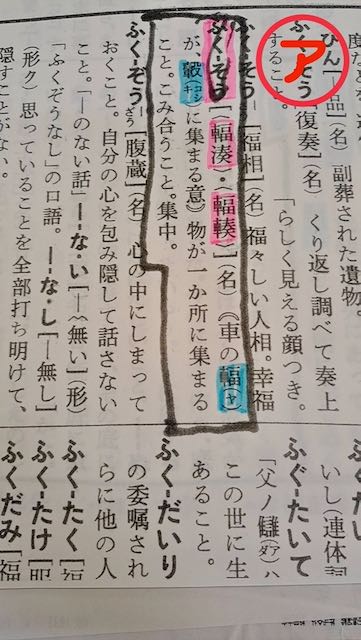 ア
ひん[―品](名) 副葬された遺物。
ふく‐そう[復奏](名) くり返し調べて奏上
すること。 「らしく見える顔つき。
ふく‐そう―[福相](名) 福々しい人相。幸福
ふく‐そう[輻湊・輻輳](名)《車の輻(ヤ)
が、轂(コシキ)に集まる意》物が一か所に集まる
こと。こみ合うこと。集中。
ふく‐ぞう[腹蔵](名) 心の中にしまって
おくこと。自分の心を包み隠して話さない
こと。「―のない話」―な・い[―無い](形)
「ふくぞうなし」の口語。―な・し[―無し]
(形ク)思っていることを全部打ち明けて、
隠すことがない。
いし(連体
ふぐ‐たいて
「父ノ讎(アダ)ハ
この世に生
あること。
ふく‐だいり
の委嘱され
らに他の人
ふく‐たく[福
ふく‐たけ[
ふくだみ[福